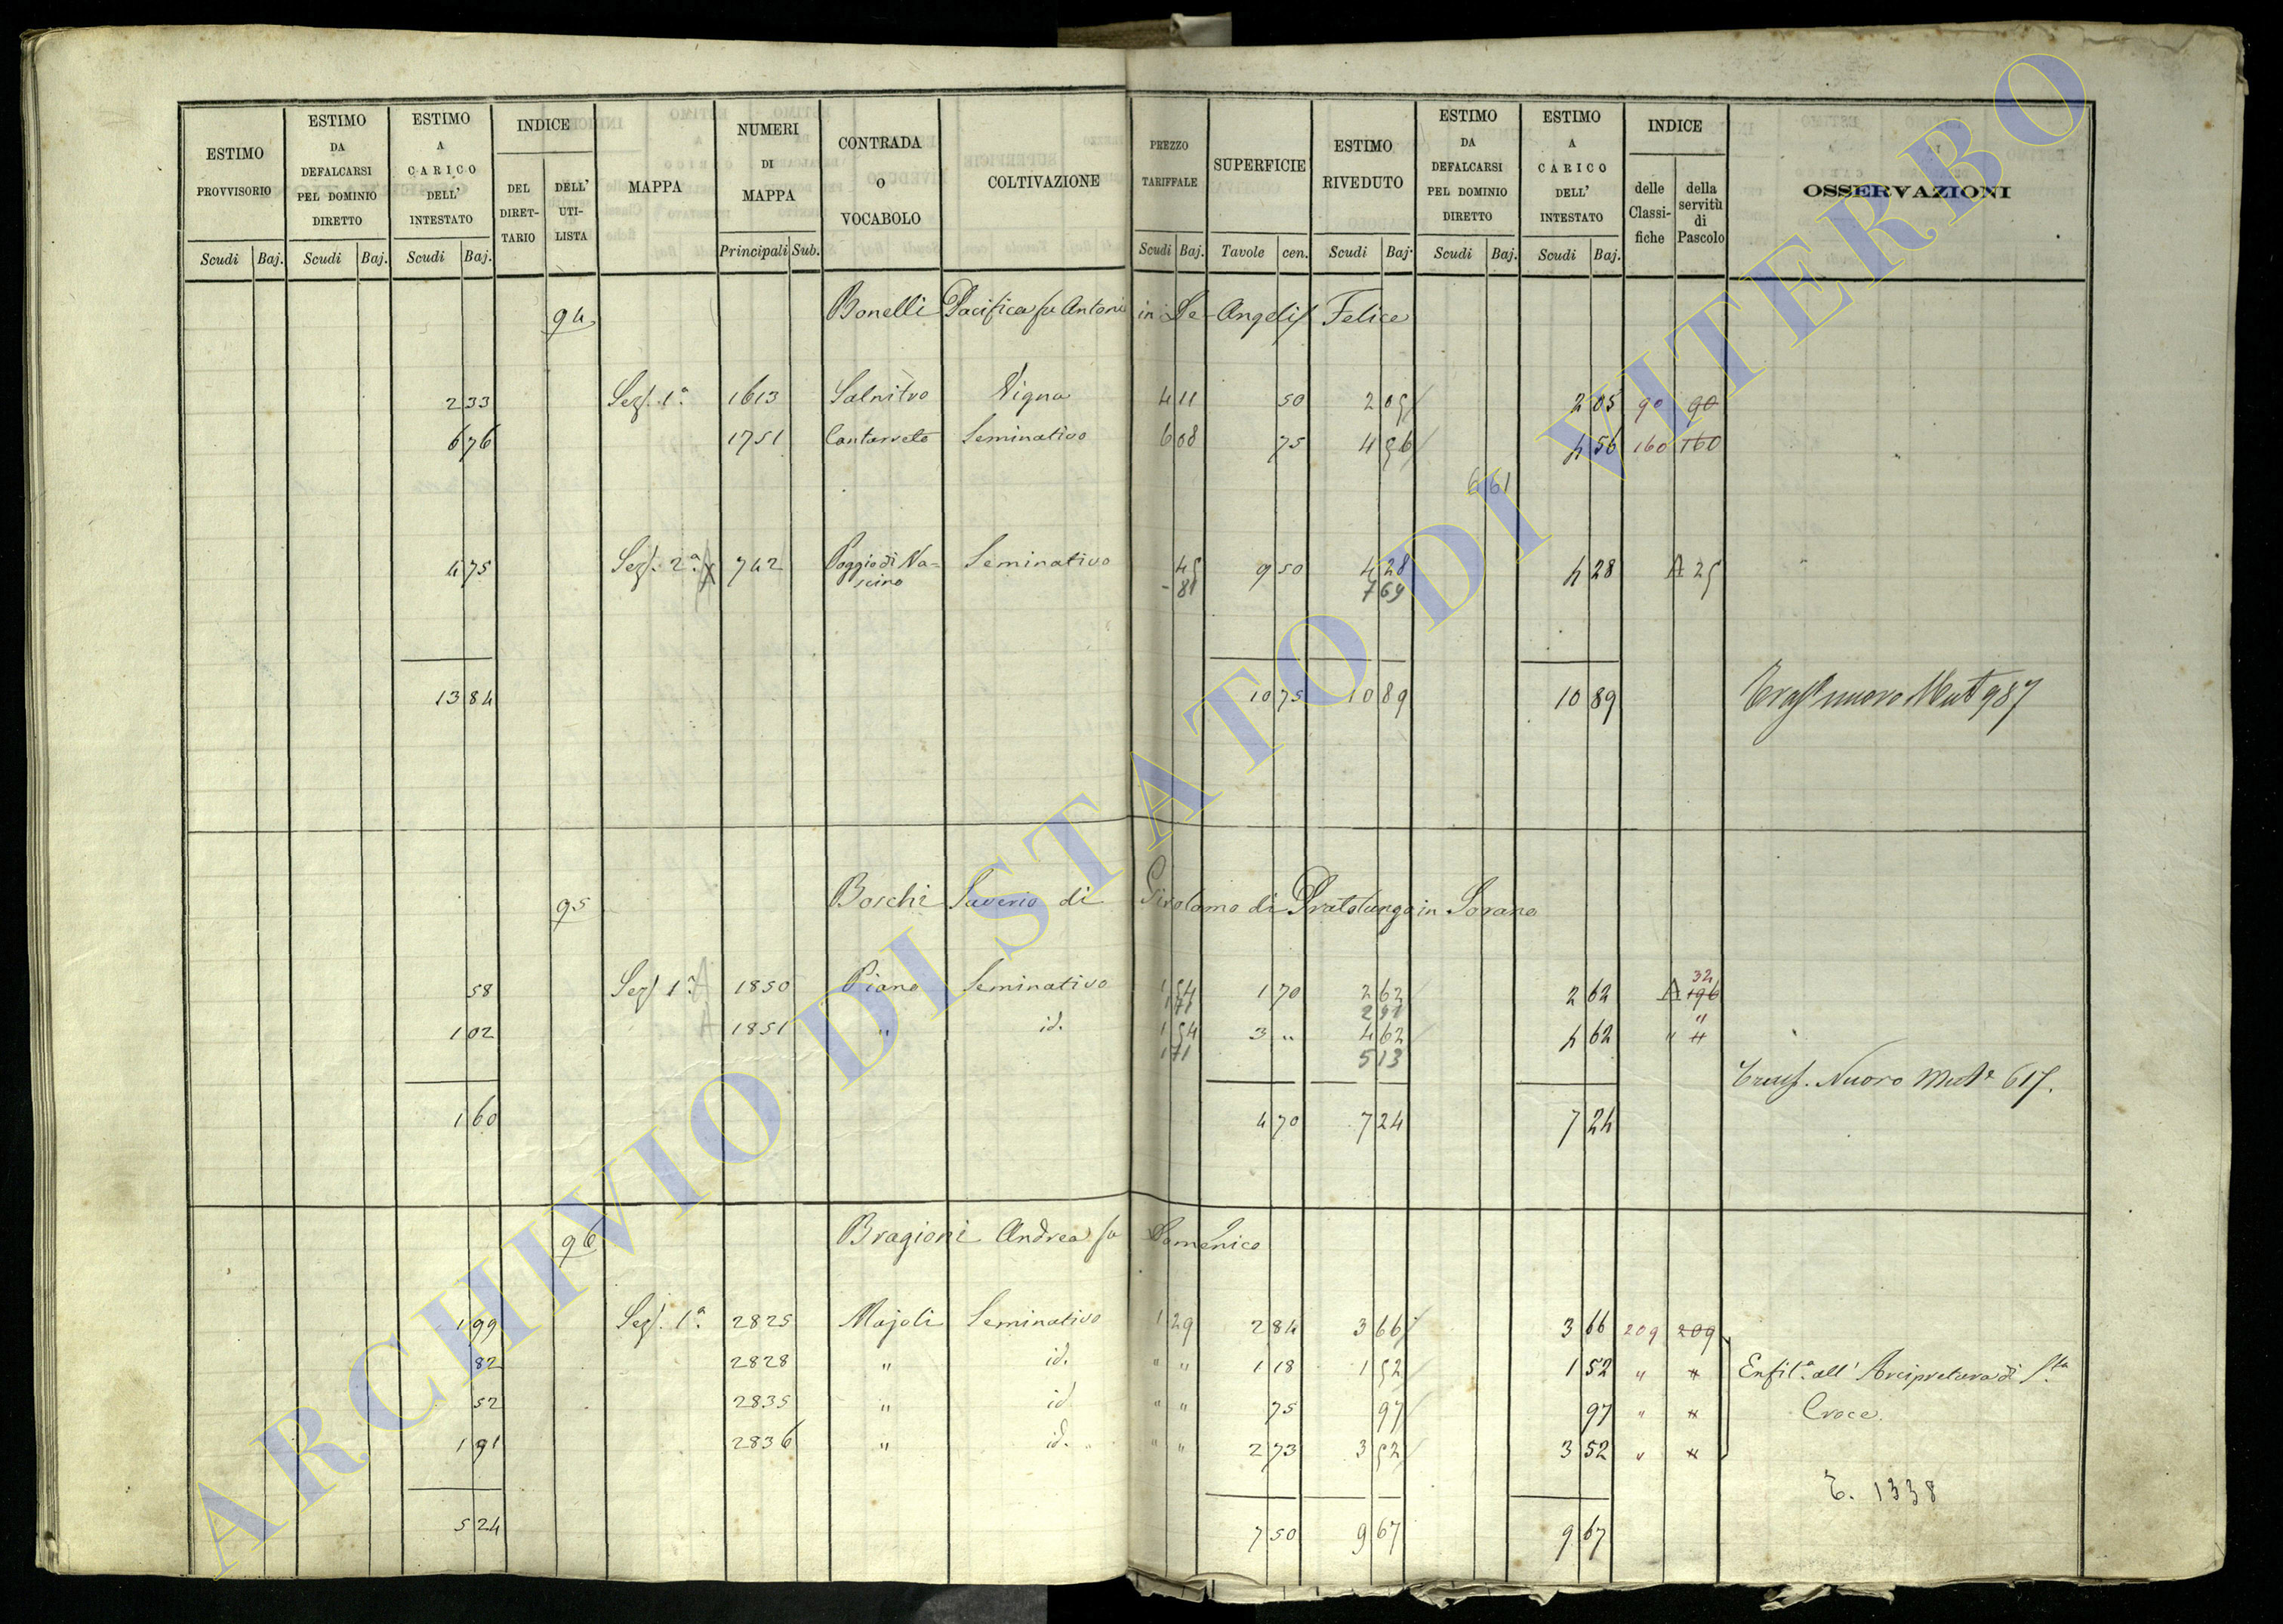 ESTIMO PROVVISORIO Scudi Baj.
ESTIMO DA DEFALCARSI PEL DOMINIO DIRETTO Scudi Baj.
ESTIMO A CARICO DELL' INTESTATO Scudi Baj.
INDICE DEL DIRET- TARIO DELL' UTI- LISTA
MAPPA
NUMERI DI MAPPA Principali Sub.
CONTRADA O VOCABOLO
COLTIVAZIONE
PREZZO TARIFFALE Scudi Baj.
SUPERFICIE Tavole cen.
ESTIMO RIVEDUTO Scudi Baj.
ESTIMO DA DEFALCARSI PEL DOMINIO DIRETTO Scudi Baj.
ESTIMO A CARICO DELL' INTESTATO Scudi Baj.
INDICE delle Classi- fiche della servitù di Pascolo
OSSERVAZIONI
94 Bonelli Pacifica fu Antonio in De Angelis Felice
2 33 Sez. 1ª 1613 Salnitro Vigna 4 11 50 2 05 2 05 90 90
6 76 1751 Cantarreto Seminativo 6 08 75 4 56 4 56 160 160
6 61
4 75 Sez. 2ª 742 Poggio di Na- Seminativo 45 9 50 4 28 4 28 A 25
scino - 81 7 69
13 84 10 75 10 89 10 89 Trasp. nuovo Mut 987
95 Boschi Saverio di Girolamo di Pratolungo in Sorano
32
58 Sez. 1ª A 1850 Piano Seminativo 1 54 1 70 2 62 2 62 A 196
1 71 2 91 "
1 02 A 1851 " id. 1 54 3 " 4 62 4 62 " "
1 71 5 13
Trasp. Nuovo Mute 617.
1 60 4 70 7 24 7 24
96 Bragioni Andrea fu Domenico
1 99 Sez. 1ª 2825 Majoli Seminativo 1 29 2 84 3 66 3 66 209 209
82 2828 " id. " " 1 18 1 52 1 52 " " Enfit.a all' Arcipretura di S.ta
52 2835 " id " " 75 97 97 " " Croce.
1 91 2836 " id. " " 2 73 3 52 3 52 " "
T. 1338
5 24 7 50 9 67 9 67
ARCHIVIO DI STATO DI VITERBO